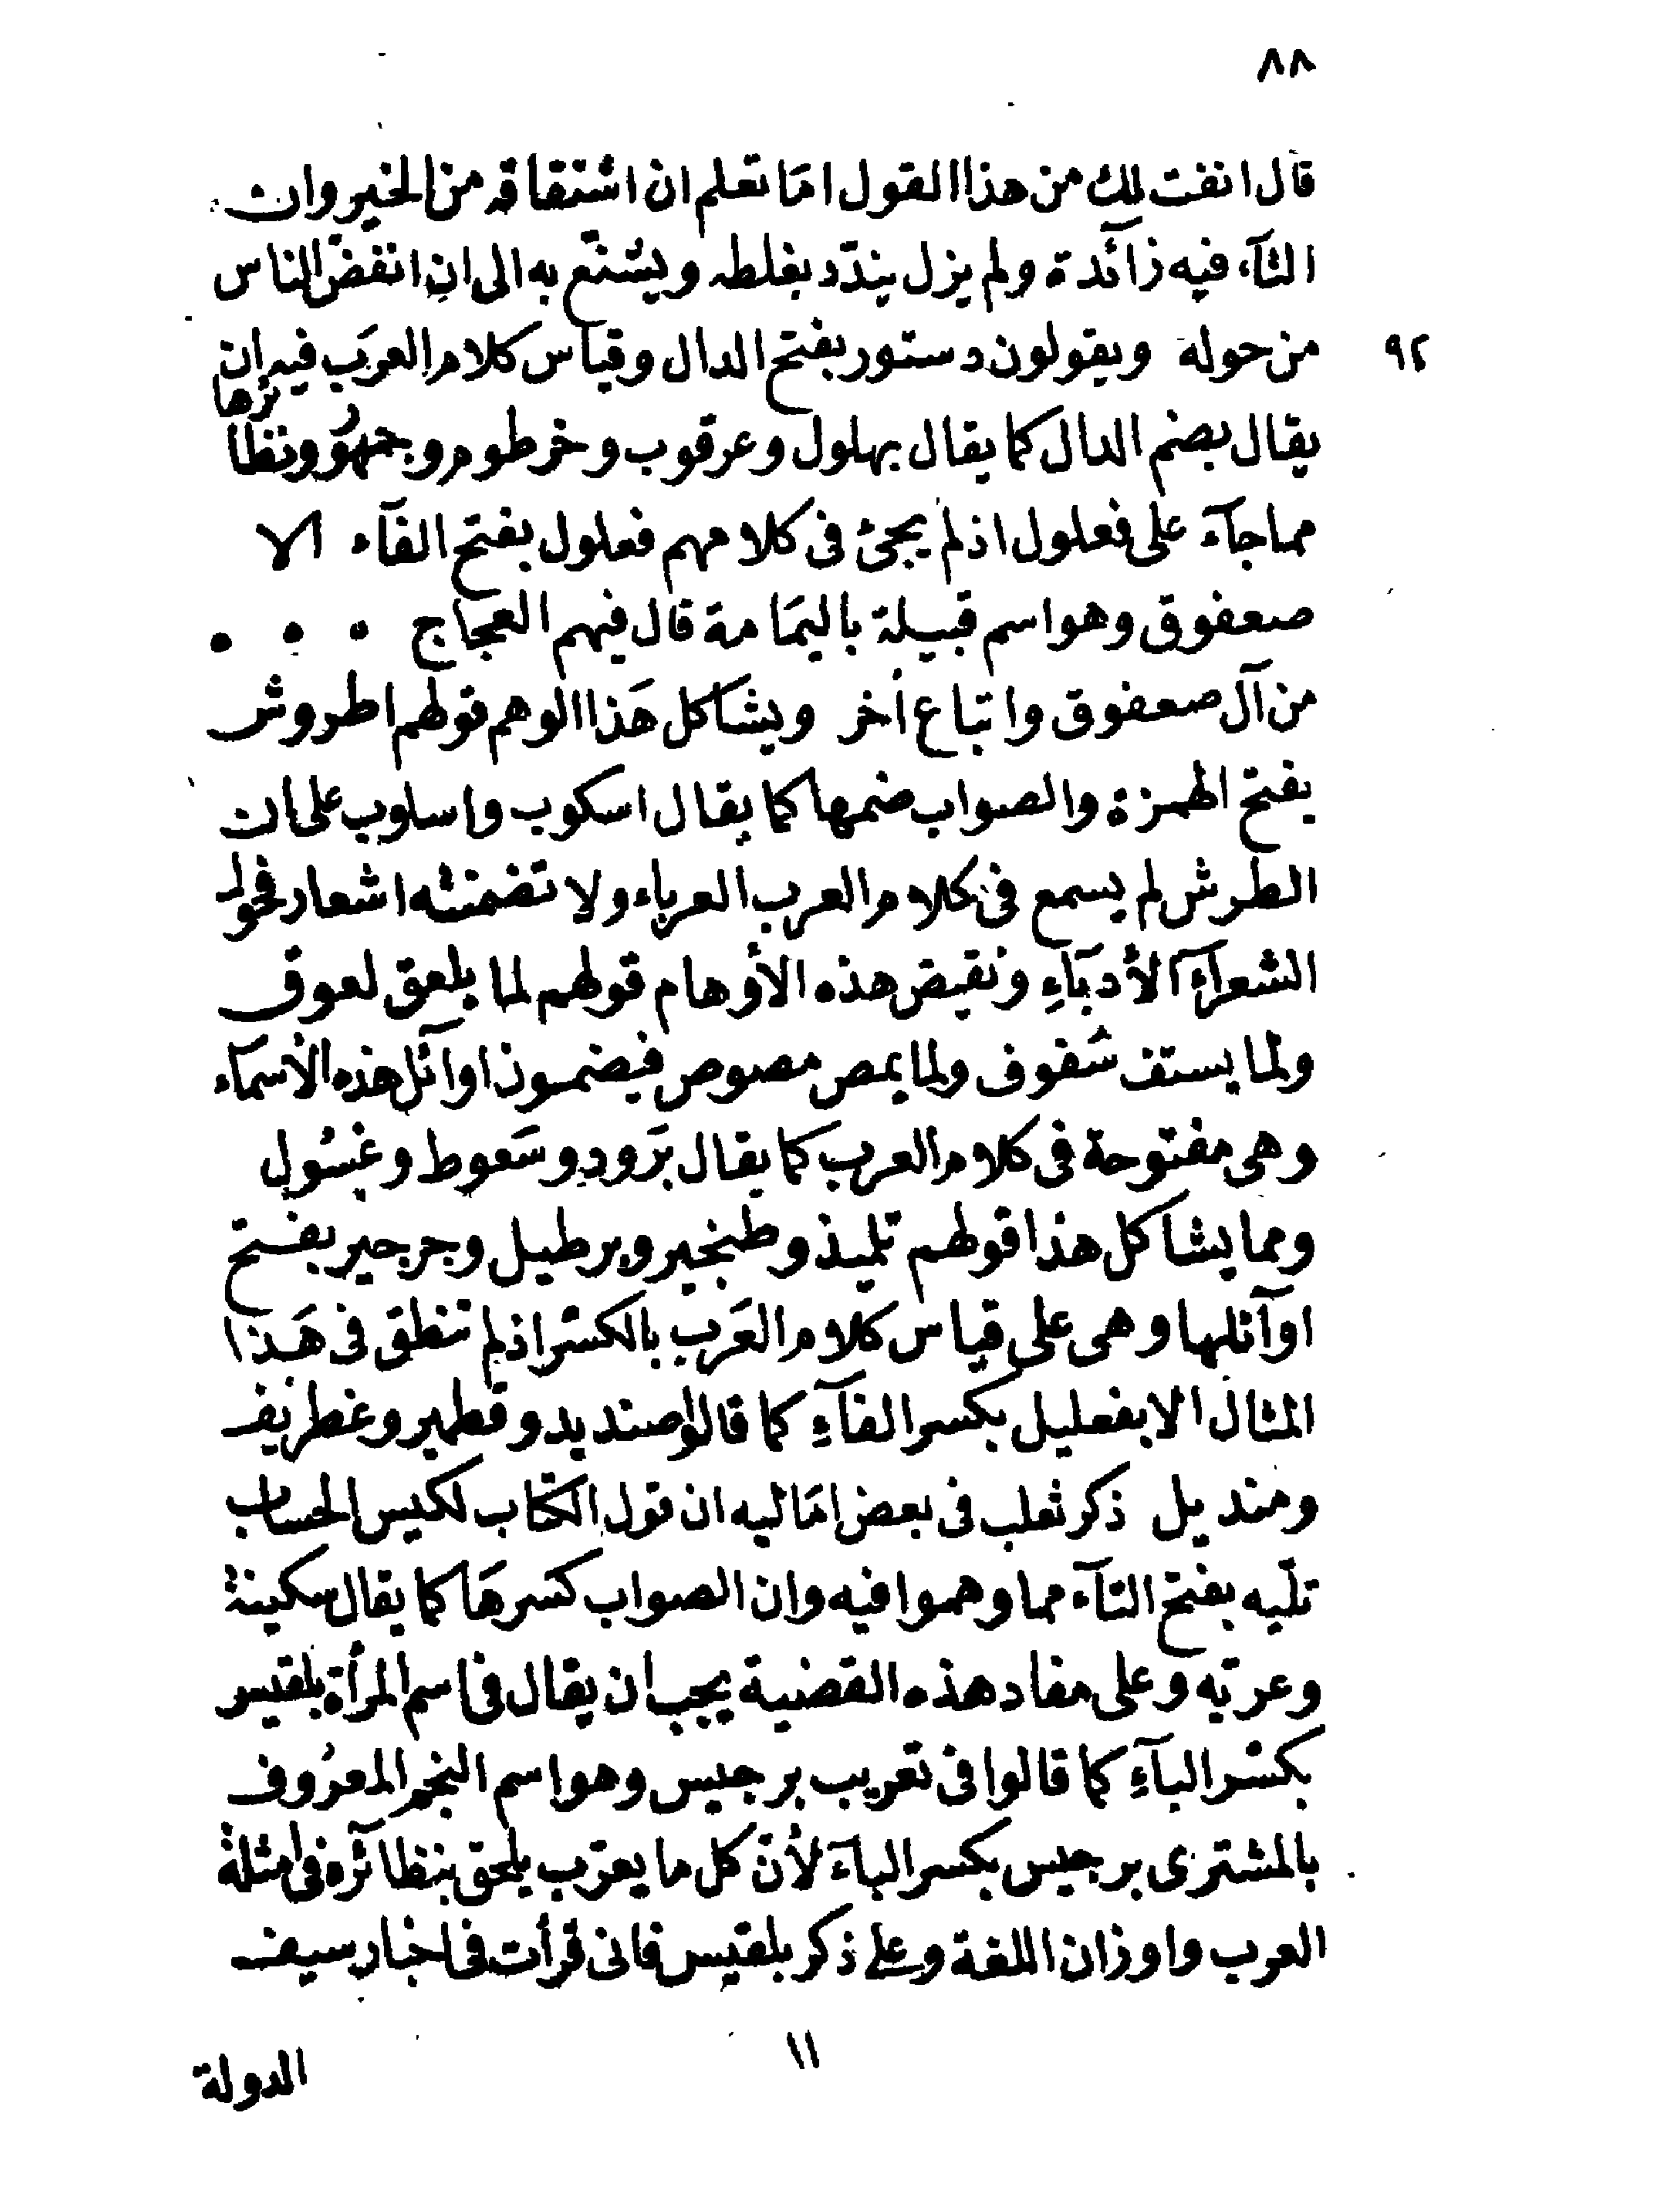 ٨٨
قال انفت لك من هذا القول امَا تعلم ان اشتقاقه من الخير وان
التآء فيه زآئدة ولم يزل يندّد بغلطه ويشنّع به الى ان انفضّ الناس
٩٢ من حوله ويقولون دستور بفتح الدال وقياس كلام العرَب فيه ان
يقال بضم الدال كما يقال بهلول وعرقوب وخرطوم وجمهُور ونظائرها
مما جآء على فعلول اذ لم يجئ فى كلامهم فعلول بفتح الفآء الا
صعفوق وهو اسم قبيلة باليمَامة قال فيهم العجاج • • •
من آل صعفوق واتباع أخر ويشاكل هَذا الوهم قولهم اطروش
بفتح الهمزة والصواب ضمها كما يقال اسكوب واسلوب على ان
الطرش لم يسمع فى كلام العرب العرباء ولا تضمنته اشعار فحول
الشعرآءِ الأدبَآءِ ونقيض هذه الأوهام قولهم لما يلعق لعوق
ولما يستف سُفوف ولما يمص مصوص فيضمون اوآئل هذه الأسمآء
وهى مفتوحة فى كلام العرب كما يقال بَرود وسَعوط وغسُول
ومما يشاكل هذا قولهم تلميذ وطنجير وبرطيل وجرجير بفتح
اوآئلها وهى على قياس كلام العَرب بالكسْر اذ لم تنطق فى هَذا
المثال الا بفعليل بكسر الفآءِ كما قالوا صنديد وقطمير وغطريف
ومنديل ذكر ثعلب فى بعض امَاليه ان قول الكتّاب لكيس الحساب
تلّيه بفتح التآء مما وهموا فيه وان الصواب كسرهَا كما يقال سكينة
وعرّيه وعلى مفاد هذه القضية يجب ان يقال فى اسم المرأة بلقيس
بكسْر البآءِ كما قالوا فى تعريب برجيس وهو اسم النجم المعرُوف
بالمشترى برجيس بكسر البآء لأنّ كل ما يعرّب يلحق بنظآئره فى امثلة
العرب واوزان اللغة وعلى ذكر بلقيس فانى قرأت فى اخبار سيف
١١
الدولة